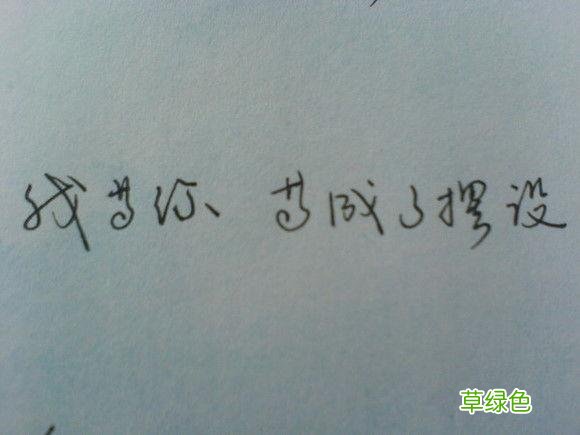 我等你 等成了摆设
草绿色